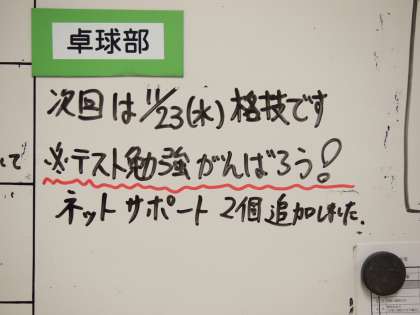 卓球部
次回は11/23(水)格技です
※テスト勉強がんばろう!
ネットサポート2個追加しました.